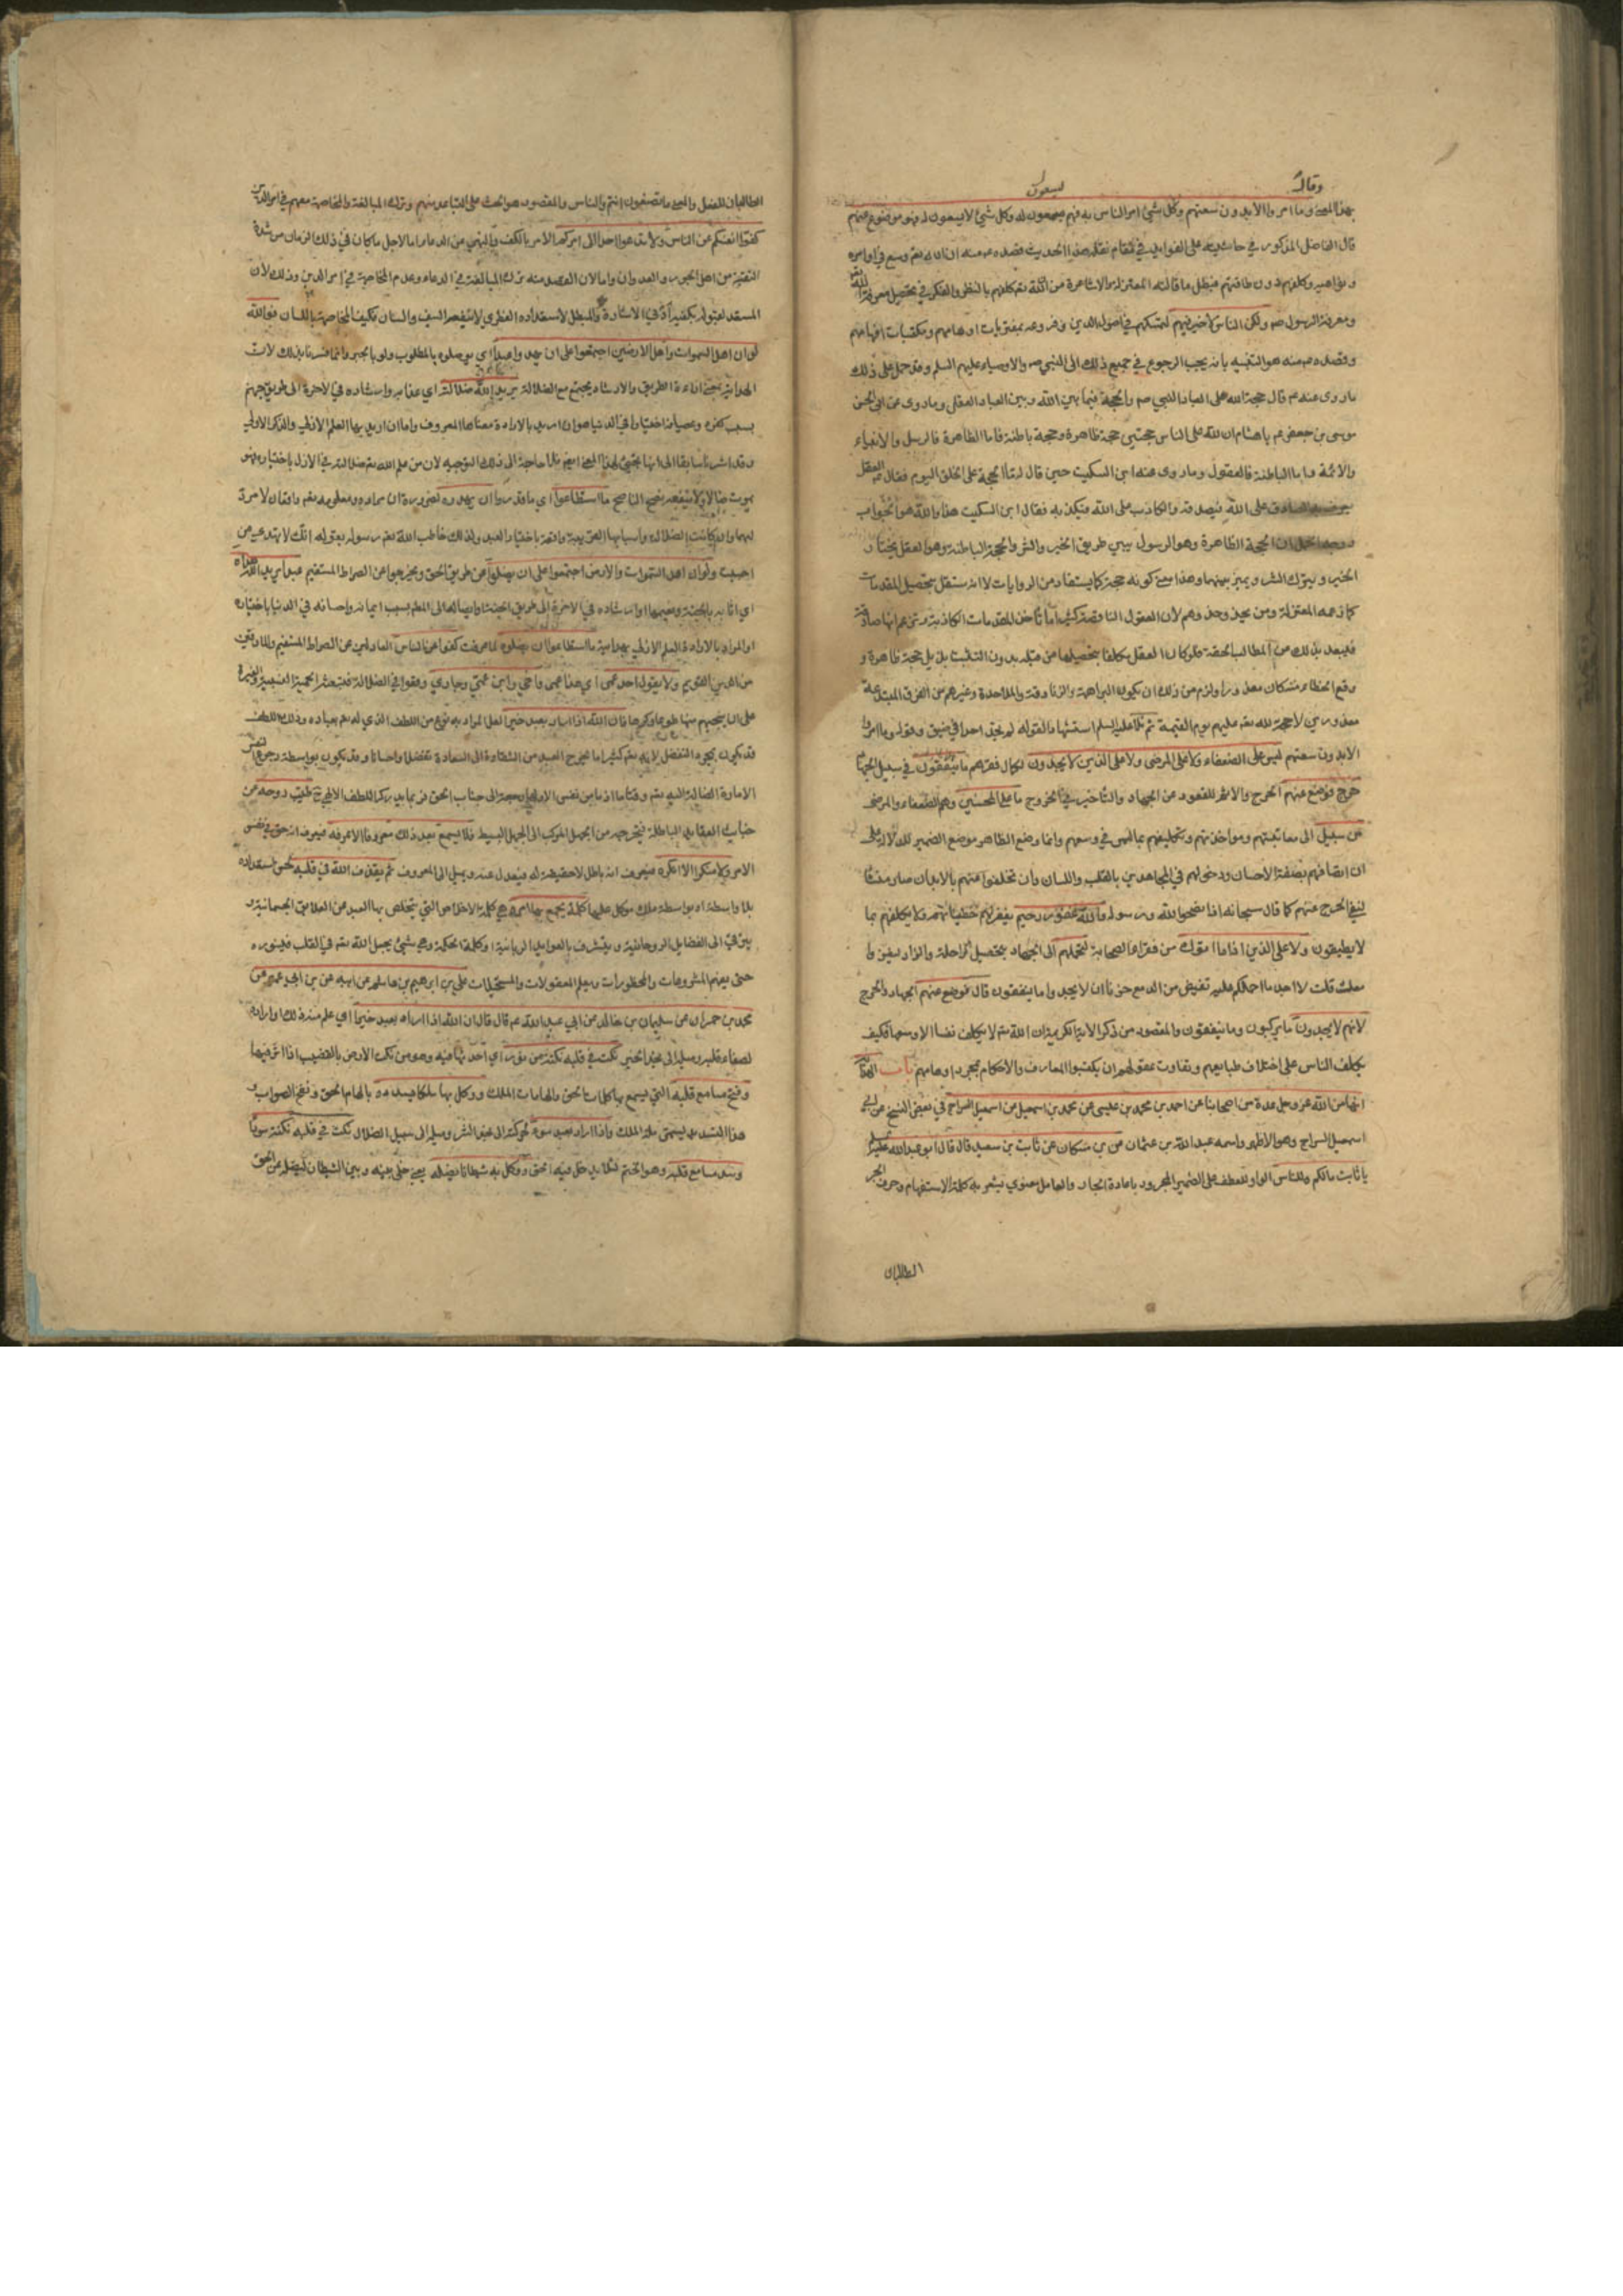 وقال
يسعون
بهذا المعنى وما امروا الا بدون سعتهم وكل شئ امر الناس به فهم يسعون له وكل شئ لا يسعون له فهو موضوع عنهم
قال الفاضل المذكور في حاشيته على الفوايد في مقام نقله هذا الحديث قصده ع منه ان الله تعم وسع في اوامره
ونواهيه وكلفهم دون طاقتهم فبطل ما قالته المعتزلة والاشاعرة من انه تعم كلفهم بالنظر والفكر في تحصيل معرفة الله
ومعرفة الرسول ص ولكن الناس لا خير فيهم لتمسكهم في اصول الدين وفروعه بمفتريات اوهامهم ومكتسبات افهامهم
وقصده ع منه هو التنبيه بانه يجب الرجوع في جميع ذلك الى النبي ص والاوصياء عليهم السلم وقد حمل على ذلك
ما روى عنه ع قال حجة الله على العباد النبي ص والحجة فيما بين الله وبين العباد العقل وما روى عن ابى الحسن
موسى بن جعفر ع يا هشام ان لله على الناس حجتين حجة ظاهرة وحجة باطنة فاما الظاهرة فالرسل والانبياء
والائمة واما الباطنة فالعقول وما روى عنه ابن السكيت حين قال له ما الحجة على الخلق اليوم فقال ع العقل
يعرف به الصادق على الله فيصدقه والكاذب على الله فيكذبه فقال ابن السكيت هذا والله هو الجواب
ووجه الحمل ان الحجة الظاهرة وهو الرسول يبين طريق الخير والشر والحجة الباطنة وهو العقل يختار
الخير ويترك الشر ويميز بينهما وهذا معنى كونه حجة كما يستفاد من الروايات لا انه مستقل بتحصيل المقدمات
كما زعمه المعتزلة ومن يحذو حذوهم لان العقول الناقصة كثيرا ما تأخذ المقدمات الكاذبة وتزعم انها صادقة
فيبعد بذلك من المطالب الحقة فلو كان العقل مكلفا بتحصيلها من قبله بدون التشبث بذيل حجة ظاهرة و
وقع الخطاء منه كان معذورا ولزم من ذلك ان يكون البراهمة والزنادقة والملاحدة وغيرهم من الفرق المبتدعة
معذورين لا حجة لله تعم عليهم يوم القيمة ثم تلا عليه السلم استشهادا لقوله لم تجد احدا في ضيق وقوله وما امروا
الا بدون سعتهم ليس على الضعفاء ولا على المرضى ولا على الذين لا يجدون لكمال فقرهم ما ينفقون في سبيل الجهاد
حرج فوضع عنهم الحرج والاثم للقعود عن الجهاد والتأخير في الخروج ما على المحسنين وهم الضعفاء والمرضى
من سبيل الى معاتبتهم ومواخذتهم وتكليفهم بما ليس في وسعهم وانما وضع الظاهر موضع الضمير للدلالة على
ان اتصافهم بصفة الاحسان ودخولهم في المجاهدين بالقلب واللسان وان تخلفوا عنهم بالابدان صار منشأ
لنفي الحرج عنهم كما قال سبحانه اذا نصحوا لله ورسوله والله غفور رحيم يغفر لهم خطيئاتهم ولا يكلفهم بما
لا يطيقون ولا على الذين اذا ما اتوك من فقراء الصحابة لتحملهم الى الجهاد بتحصيل الراحلة والزاد ليغزوا
معك قلت لا اجد ما احملكم عليه تفيض من الدمع حزنا ان لا يجدوا ما ينفقون قال فوضع عنهم الجهاد والحرج
لانهم لا يجدون ما يركبون وما ينفقون والمقصود من ذكر الاية الكريمة ان الله تعم لا يكلف نفسا الا وسعها فكيف
يكلف الناس على اختلاف طبايعهم وتفاوت عقولهم ان يكتسبوا المعارف والاحكام بمجرد اوهامهم باب الهداية
انها من الله عز وجل عدة من اصحابنا عن احمد بن محمد بن عيسى عن محمد بن اسمعيل عن اسمعيل السراج في بعض النسخ عن ابي
اسمعيل السراج وهو الاظهر واسمه عبد الله بن عثمان عن بن مسكان عن ثابت بن سعيد قال قال ابو عبد الله عليه السلم
يا ثابت ما لكم وللناس الواو للعطف على الضمير المجرور باعادة الجار والعامل معنوي يشعر به كلمة الاستفهام وحرف الجر
الطالبان
الطالبان للفعل والمعنى ما تصنعون انتم والناس والمقصود هو الحث على التباعد منهم وترك المبالغة والمخاصمة معهم في امر الدين
كفوا انفسكم عن الناس ولا تدعوا احدا الى امركم الامر بالكف والنهي عن الدعاء اما لاجل ما كان في ذلك الزمان من شدة
التقية من اهل الجور والعدوان واما لان القصد منه ترك المبالغة في الدعاء وعدم المخاصمة في امر الدين وذلك لان
المستعد لقبوله يكفيه ادنى الاشارة والمبطل لاستعداده الفطري لا ينفعه السيف والسنان فكيف المخاصمة باللسان فوالله
لو ان اهل السموات واهل الارضين اجتمعوا على ان يهدوا عبدا اي يوصلوه بالمطلوب ولو بالجبر وانما فسرنا بذلك لان
الهداية بمعنى اراءة الطريق والارشاد يجتمع مع الضلالة يريد الله ضلالته اي عذابه وارشاده في الاخرة الى طريق جهنم
بسبب كفره وعصيانه اختيارا في الدنيا هو ان اريد بالارادة معناها المعروف واما ان اريد بها العلم الازلي والذكر الاولي
وقد اشرنا سابقا الى انها يجئ لهذا المعنى ايضم فلا حاجة الى ذلك التوجيه لان من علم الله تعم ضلالته في الازل باختياره فهو
يموت ضالا ولا ينفعه نصح الناصح ما استطاعوا اي ما قدروا ان يهدوه لضرورة ان مراده ومعلومه تعم واقعان لا مرد
لهما ولذا كانت الضلالة واسبابها القريبة واقعة باختيار العبد ولذلك خاطب الله تعم رسوله بقوله انك لا تهدي من
احببت ولو ان اهل السموات والارض اجتمعوا على ان يضلوا عن طريق الحق ويخرجوا عن الصراط المستقيم عبدا يريد الله هداه
اي اثابه بالجنة ونعيمها وارشاده في الاخرة الى طريق الجنة وايصاله الى المطلوب بسبب ايمانه واحسانه في الدنيا باختياره
او المراد بالارادة العلم الازلي بهدايته ما استطاعوا ان يضلوه لما عرفت كفوا عن الناس العادلين عن الصراط المستقيم والمارقين
من الدين القويم ولا يقول احد عمي اي هذا عمي واخي وابن عمي وجاري وقعوا في الضلالة فتبعثه الحمية العصبية والغيرة
على ان ينجيهم منها طوعا وكرها فان الله اذا اراد بعبد خيرا لعل المراد به نوع من اللطف الذي له تعم بعباده وذلك اللطف
قد يكون بمجرد التفضل لانه تعم كثيرا ما يخرج العبد من الشقاوة الى السعادة تفضلا واحسانا وقد يكون بواسطة رجوع النفس
الامارة الضالة اليه تعم وقتا ما اذ ما من نفس الا ولها رجعة الى جناب الحق فربما يدركه اللطف الالهي طيب روحه من
خبايث العقايد الباطلة فيخرجه من الجهل المركب الى الجهل البسيط فلا يسمع بعد ذلك معروفا الا عرفه فيعرف انه حق في نفس
الامر ولا منكرا الا انكره فيعرف انه باطل لا حقيقة له فيعدل عنه ويميل الى المعروف ثم يقذف الله في قلبه بحسن استعداده
بلا واسطة او بواسطة ملك موكل عليها كلمة يجمع بها امره وهي كلمة الاخلاص التي يتخلص بها العبد من العلايق الجسمانية و
يترقى الى الفضايل الروحانية ويتشرف بالعوايد الربانية او كلمة الحكمة وهي شئ يجعل الله تعم في القلب فينوره
حتى يفهم المشروعات والمحظورات ويعلم المعقولات والمستحيلات علي بن ابرهيم بن هاشم عن ابيه عن بن ابي عمير عن
محمد بن حمران عن سليمان بن خالد عن ابي عبد الله ع قال قال ان الله اذا اراد بعبد خيرا اي علم منه ذلك او اراده
لصفاء قلبه وميله الى الخير نكت في قلبه نكتة من نور اي احدثها فيه وهو من نكت الارض بالقضيب اذا اثر فيها
وفتح مسامع قلبه التي يسمع بها كلمات الحق والهامات الملك ووكل به ملكا يسدده بالهام الحق ونفخ الصواب و
هذا التسديد يسمى بلمة الملك واذا اراد بعبد سوءا لحركته الى الشر وميله الى سبيل الضلال نكت في قلبه نكتة سوداء
وسد مسامع قلبه وهو الختم لئلا يدخل فيه الحق ووكل به شيطانا يضله يعني خلى بينه وبين الشيطان ليضله عن الحق